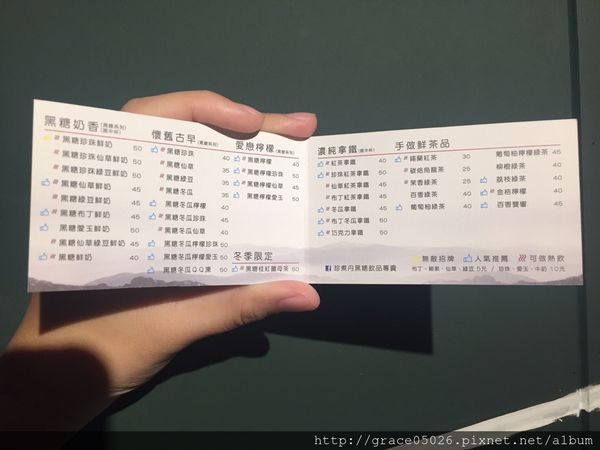 黑糖奶香 (黑糖系列) (限中杯)
黑糖珍珠鮮奶 50
黑糖珍珠仙草鮮奶 50
黑糖珍珠綠豆鮮奶 50
黑糖仙草鮮奶 45
黑糖綠豆鮮奶 45
黑糖布丁鮮奶 50
黑糖愛玉鮮奶 50
黑糖仙草綠豆鮮奶 45
黑糖鮮奶 40
懷舊古早 (黑糖系列)
黑糖珍珠 40
黑糖仙草 35
黑糖綠豆 35
黑糖冬瓜 35
黑糖冬瓜檸檬 40
黑糖冬瓜珍珠 45
黑糖冬瓜仙草 40
黑糖冬瓜檸檬珍珠 50
黑糖冬瓜檸檬愛玉 50
黑糖冬瓜QQ凍 50
愛戀檸檬 (黑糖系列)
黑糖檸檬 40
黑糖檸檬珍珠 50
黑糖檸檬仙草 45
黑糖檸檬愛玉 50
冬季限定
黑糖桂紅薑母茶 50
濃純拿鐵 (限中杯)
紅茶拿鐵 40
珍珠紅茶拿鐵 50
仙草紅茶拿鐵 45
布丁紅茶拿鐵 50
冬瓜拿鐵 45
布丁冬瓜拿鐵 50
巧克力拿鐵 50
手做鮮茶品
錫蘭紅茶 30
碳焙烏龍茶 25
茉香綠茶 25
百香綠茶 40
葡萄柚綠茶 40
葡萄柚檸檬綠茶 45
柳橙綠茶 40
荔枝綠茶 40
金桔檸檬 40
百香雙響 45
珍煮丹黑糖飲品專賣
無敵招牌 人氣推薦 可做熱飲
布丁、椰果、仙草、綠豆 5元 / 珍珠、愛玉、牛奶 10元
http://grace05026.pixnet.net/album